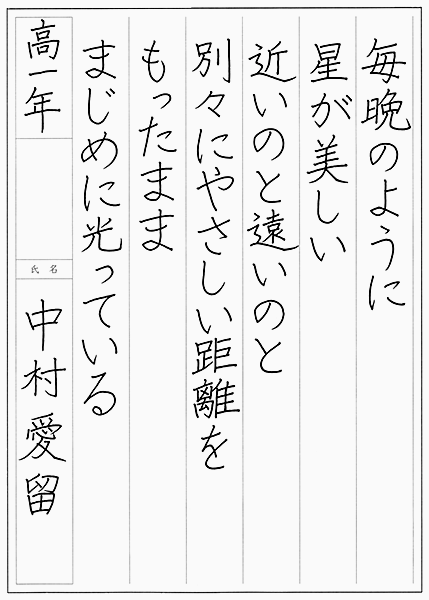 毎晩のように
星が美しい
近いのと遠いのと
別々にやさしい距離を
もったまま
まじめに光っている
高一年
氏名
中村愛留